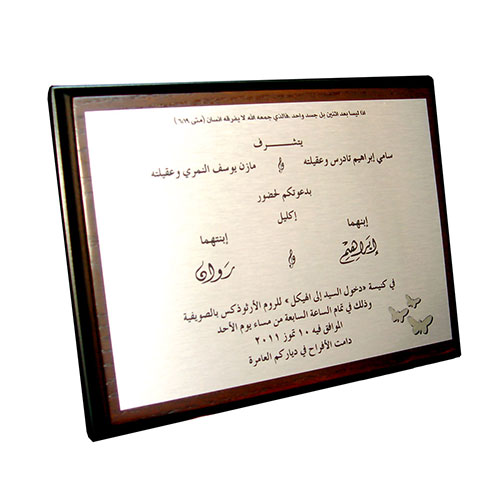 اذا ليسا بعد اثنين بل جسد واحد .فالذي جمعه الله لا يفرقه انسان (متى ٦:١٩)
يتشرف
سامي إبراهيم تادرس وعقيلته و مازن يوسف النمري وعقيلته
بدعوتكم لحضور
إكليل
إبنهما إبنتهما
إبراهيم و روان
في كنيسة «دخول السيد إلى الهيكل» للروم الأرثوذكس بالصويفية
وذلك في تمام الساعة السابعة من مساء يوم الأحد
الموافق فيه ١٠ تموز ٢٠١١
دامت الأفراح في دياركم العامرة